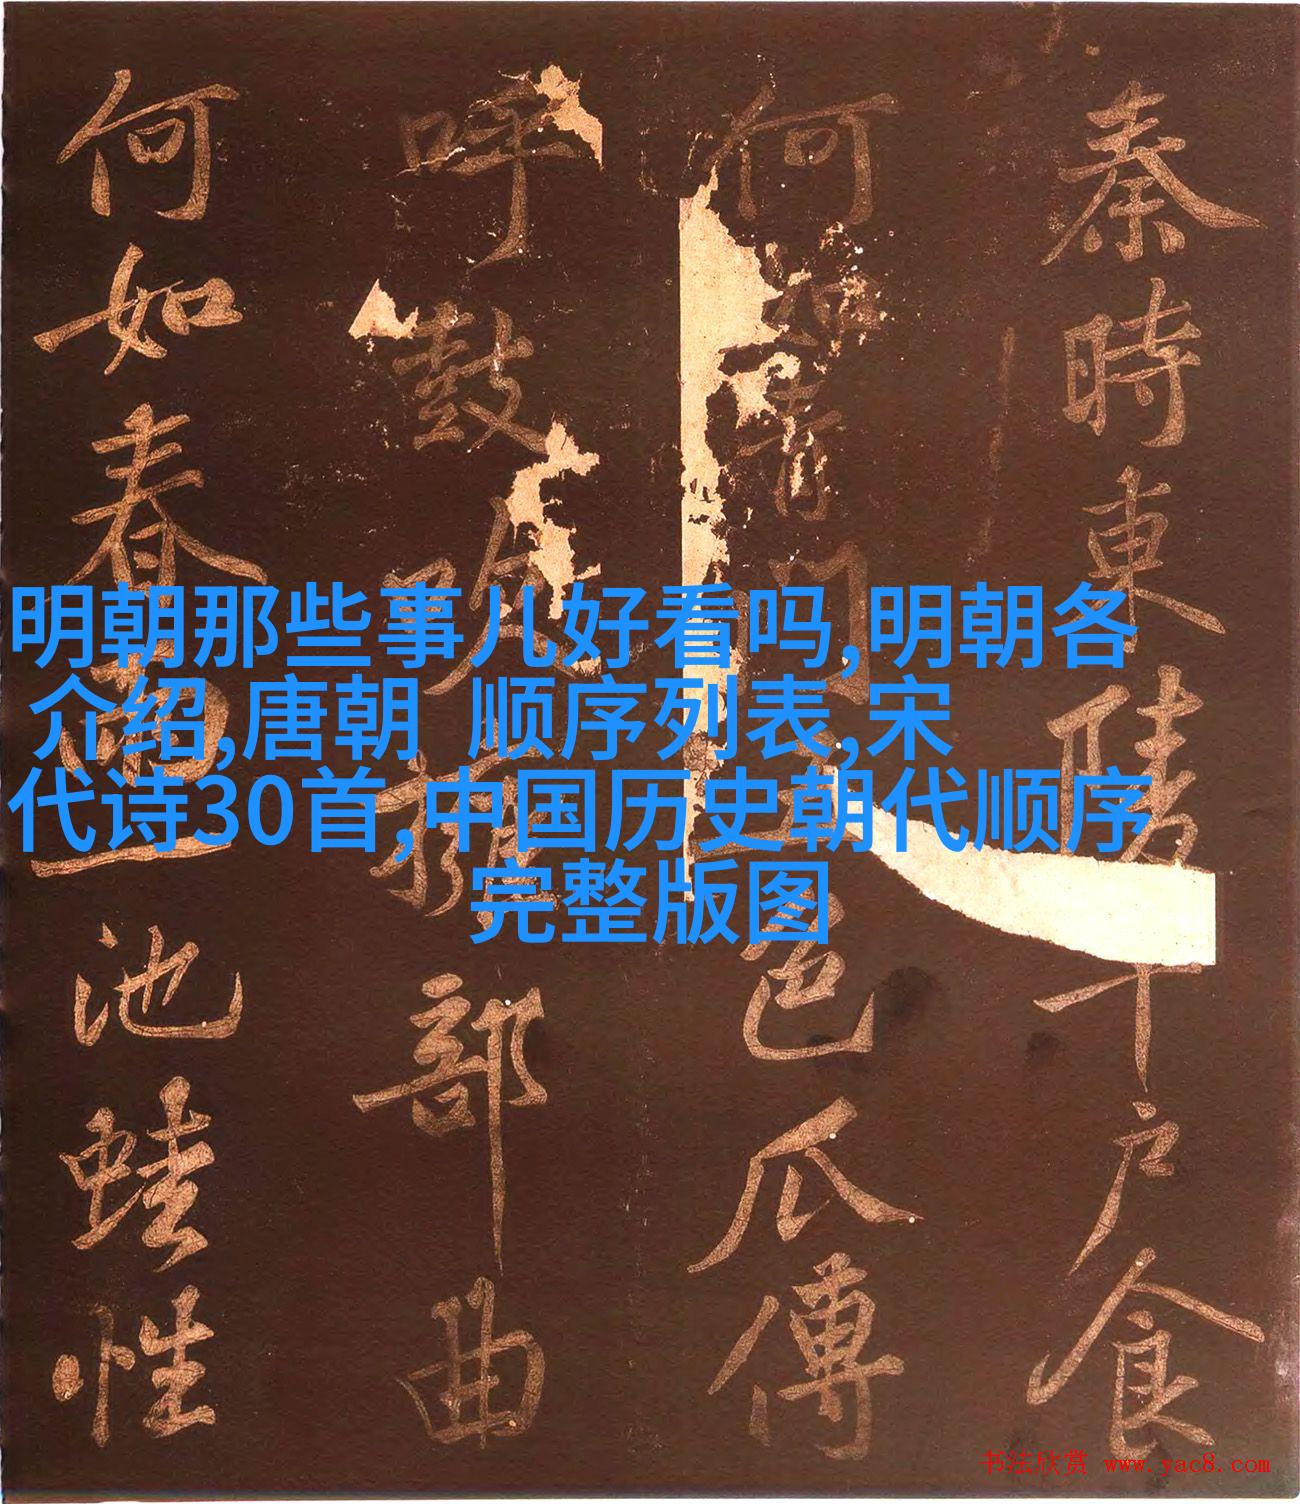 秦時東陵千户食
何如青門五色瓜傅
呼鼓吹擁部曲
何如春一池蛙性
明朝那些事儿好看吗,明朝各
介绍,唐朝 顺序列表,宋
代诗30首,中国历史朝代顺序
完整版图
书法欣赏 www.yac8.com